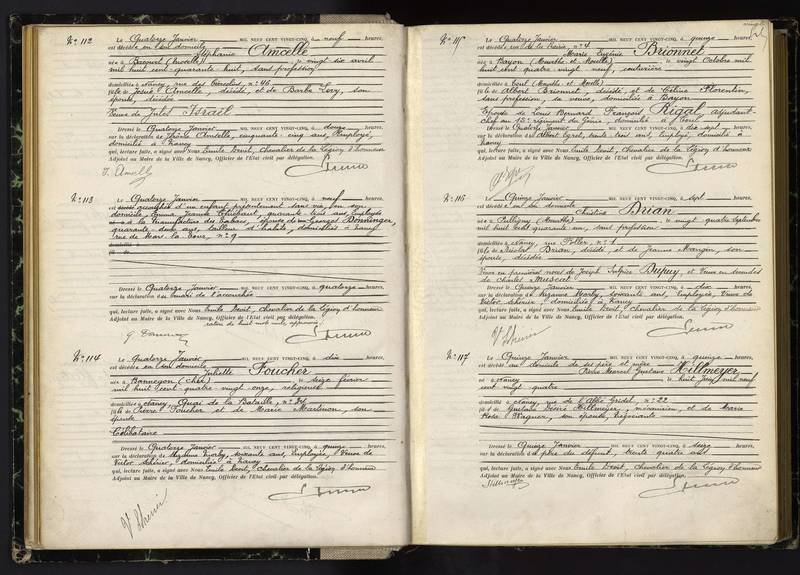 N° 112
Le Quatorze Janvier MIL NEUF CENT VINGT-CINQ, à neuf heures,
est décédée en son domicile
Stéphanie Ancelle
née à Bacquet (Moselle) le vingt six avril
mil huit cent quarante huit, sans profession
domiciliée à Nancy, rue des 46
fille de Josué Ancelle, décédé et de Barbe Lévy, son
épouse, décédée
Veuve de Jules Israël
Dressé le Quatorze Janvier MIL NEUF CENT VINGT-CINQ, à douze heures,
sur la déclaration de Ancelle, cinquante cinq ans, employé,
domicilié à Nancy
qui, lecture faite, a signé avec Nous Emile Chevalier de la Légion d'honneur
Adjoint au Maire de la Ville de Nancy, Officier de l'Etat civil par délégation.
N° 113
Le Quatorze Janvier MIL NEUF CENT VINGT-CINQ, à neuf heures,
est accouchée d'un enfant présentement sans vie, en son
domicile, Emma Jeanne Thiébaut, quarante trois ans, Employée
à la Manufacture des Tabacs, épouse de Georges Bonninger,
quarante deux ans, tailleur d'habits, domiciliés à Nancy
rue de Mars la Tour, n° 9
Dressé le Quatorze Janvier MIL NEUF CENT VINGT-CINQ, à quatorze heures,
sur la déclaration du mari de l'accouchée
qui, lecture faite, a signé avec Nous Emile Chevalier de la Légion d'honneur
Adjoint au Maire de la Ville de Nancy, Officier de l'Etat civil par délégation.
rature de huit mots nuls, approuvée
N° 114
Le Quatorze Janvier MIL NEUF CENT VINGT-CINQ, à dix heures,
est décédée en son domicile
Juliette Foucher
née à Bannegon (Cher) le seize février
mil huit cent quatre-vingt onze, religieuse
domiciliée à Nancy, Quai de la Bataille, n°
fille de Pierre Foucher et de Marie Martinon, son
épouse
Célibataire
Dressé le Quatorze Janvier MIL NEUF CENT VINGT-CINQ, à quinze heures,
sur la déclaration de Suzanne Marly, soixante ans, Employée, Veuve de
Victor Schenir, domiciliée à Nancy
qui, lecture faite, a signé avec Nous Emile Chevalier de la Légion d'honneur
Adjoint au Maire de la Ville de Nancy, Officier de l'Etat civil par délégation.
N° 115
Le Quatorze Janvier MIL NEUF CENT VINGT-CINQ, à quinze heures,
est décédée rue de la n° 4
Marie Eugénie Brionnet
née à Bayon (Meurthe et Moselle) le vingt Octobre mil
huit cent quatre vingt neuf, couturière
domiciliée à Toul (Meurthe et Moselle)
fille de Albert Brionnet, décédé, et de Céline Florentin,
sans profession, sa veuve, domiciliée à Bayon
Epouse de Louis Bernard François Rigal, adjudant-
chef au 15e régiment du Génie, domicilié à Toul
Dressé le Quatorze Janvier MIL NEUF CENT VINGT-CINQ, à dix sept heures,
sur la déclaration de Albert trente huit ans, Employé, domicilié à
Nancy
qui, lecture faite, a signé avec Nous Emile Chevalier de la Légion d'honneur
Adjoint au Maire de la Ville de Nancy, Officier de l'Etat civil par délégation.
N° 116
Le Quinze Janvier MIL NEUF CENT VINGT-CINQ, à sept heures,
est décédée en son domicile
Christine Brian
née à Pulligny (Meurthe) le vingt quatre Septembre
mil huit cent quarante un, sans profession
domiciliée à Nancy, rue n° 1
fille de Nicolas Brian, décédé, et de Jeanne Mangin, son
épouse, décédée
Veuve en premières noces de Joseph Sulpice Dupuy et Veuve en secondes
de Charles Muscat
Dressé le Quinze Janvier MIL NEUF CENT VINGT-CINQ, à dix heures,
sur la déclaration de Suzanne Marly, soixante ans, Employée, Veuve de
Victor Schenir, domiciliée à Nancy
qui, lecture faite, a signé avec Nous Emile Chevalier de la Légion d'honneur
Adjoint au Maire de la Ville de Nancy, Officier de l'Etat civil par délégation.
N° 117
Le Quinze Janvier MIL NEUF CENT VINGT-CINQ, à quinze heures,
est décédé au domicile de ses père et mère
Pierre Marcel Gustave Hillmeyer,
né à Nancy le huit Juin mil neuf
cent vingt quatre
domicilié à Nancy, rue de l'Abbé Gridel, n° 22
fils de Gustave Désiré Hillmeyer, mécanicien, et de Marie
Rose Wagner, son épouse, négociante
Dressé le Quinze Janvier MIL NEUF CENT VINGT-CINQ, à seize heures,
sur la déclaration du père du défunt, trente quatre ans
qui, lecture faite, a signé avec Nous Emile Chevalier de la Légion d'honneur
Adjoint au Maire de la Ville de Nancy, Officier de l'Etat civil par délégation.